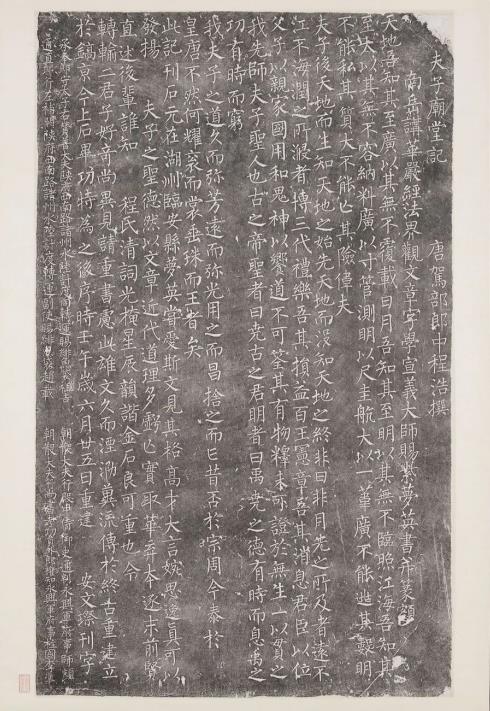 夫子廟堂記　唐駕部郎中程浩撰
南岳講華嚴經法界觀文章字學宣義大師賜紫夢英書并篆額
天地吾知其至廣以其無不覆載日月吾知其至明以其無不臨照江海吾知其
至大以其無不容納料廣以寸管測明以尺圭航大以一葦廣不能逃其數明
不能私其質大不能亡其險偉夫
夫子後天地而生知天地之始先天地而沒知天地之終非日非月光之所及者遠不
江不海潤之所浸者博三代禮樂吾其損益百王憲章吾其消息君臣以位
父子以親家國用和鬼神以饗道不可筌其有物釋未可證於無生一以貫之
我先師夫子聖人也古之帝聖者曰堯古之君明者曰禹堯之德有時而息禹之
功有時而窮
我夫子之道久而弥芳遠而弥光用之而昌捨之而亡昔否於宗周今泰於
皇唐不然何耀袞而裳垂珠而王者矣
此記刊石元在湖州臨安縣夢英嘗愛斯文見其格高才大言婉思逸真可以
發揚　夫子之聖德然以文章近代道理多虧亡實取華弃本逐末前賢
直述後輩誰知　程氏清詞光掩星辰韻諧金石良可重也今
轉輸二君子好奇尚異見請重書慮此雄文久而湮沕冀流傳於終古重建立
於鎬京今上石畢功特為之後序時壬午歲六月廿五日重建　安文璨刊字